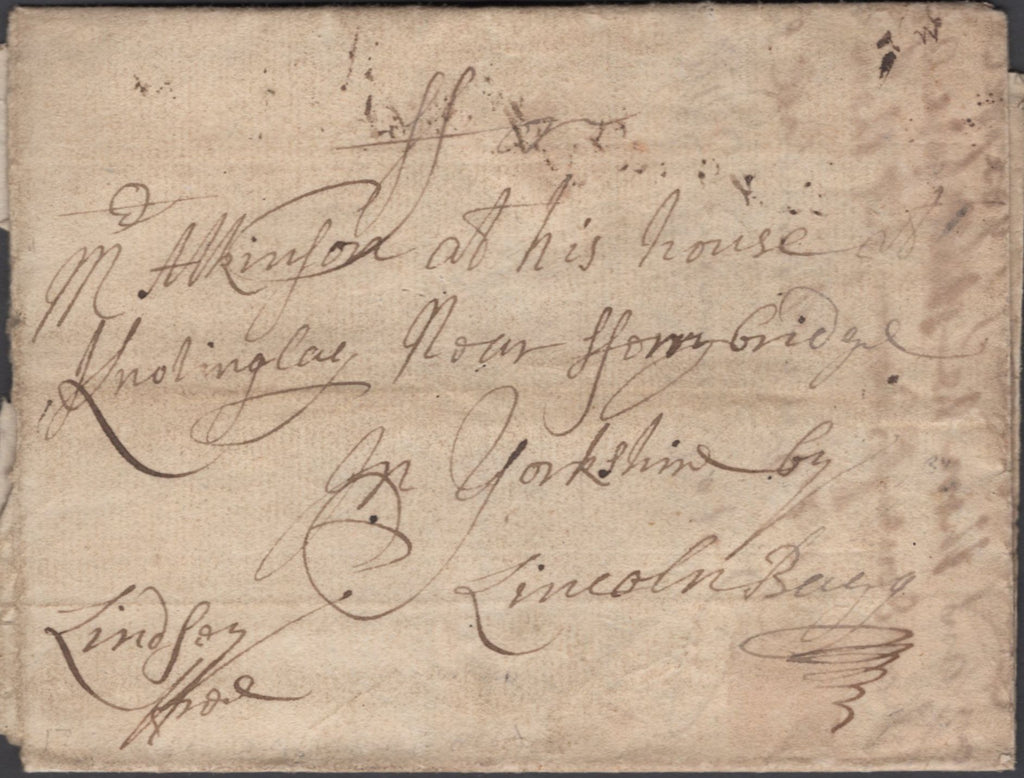 ff or
Mr Atkinson at his house at
Knotinglay Near fferrybridge
In Yorkshire by
Lincoln Bagg
Lindsey
ffree